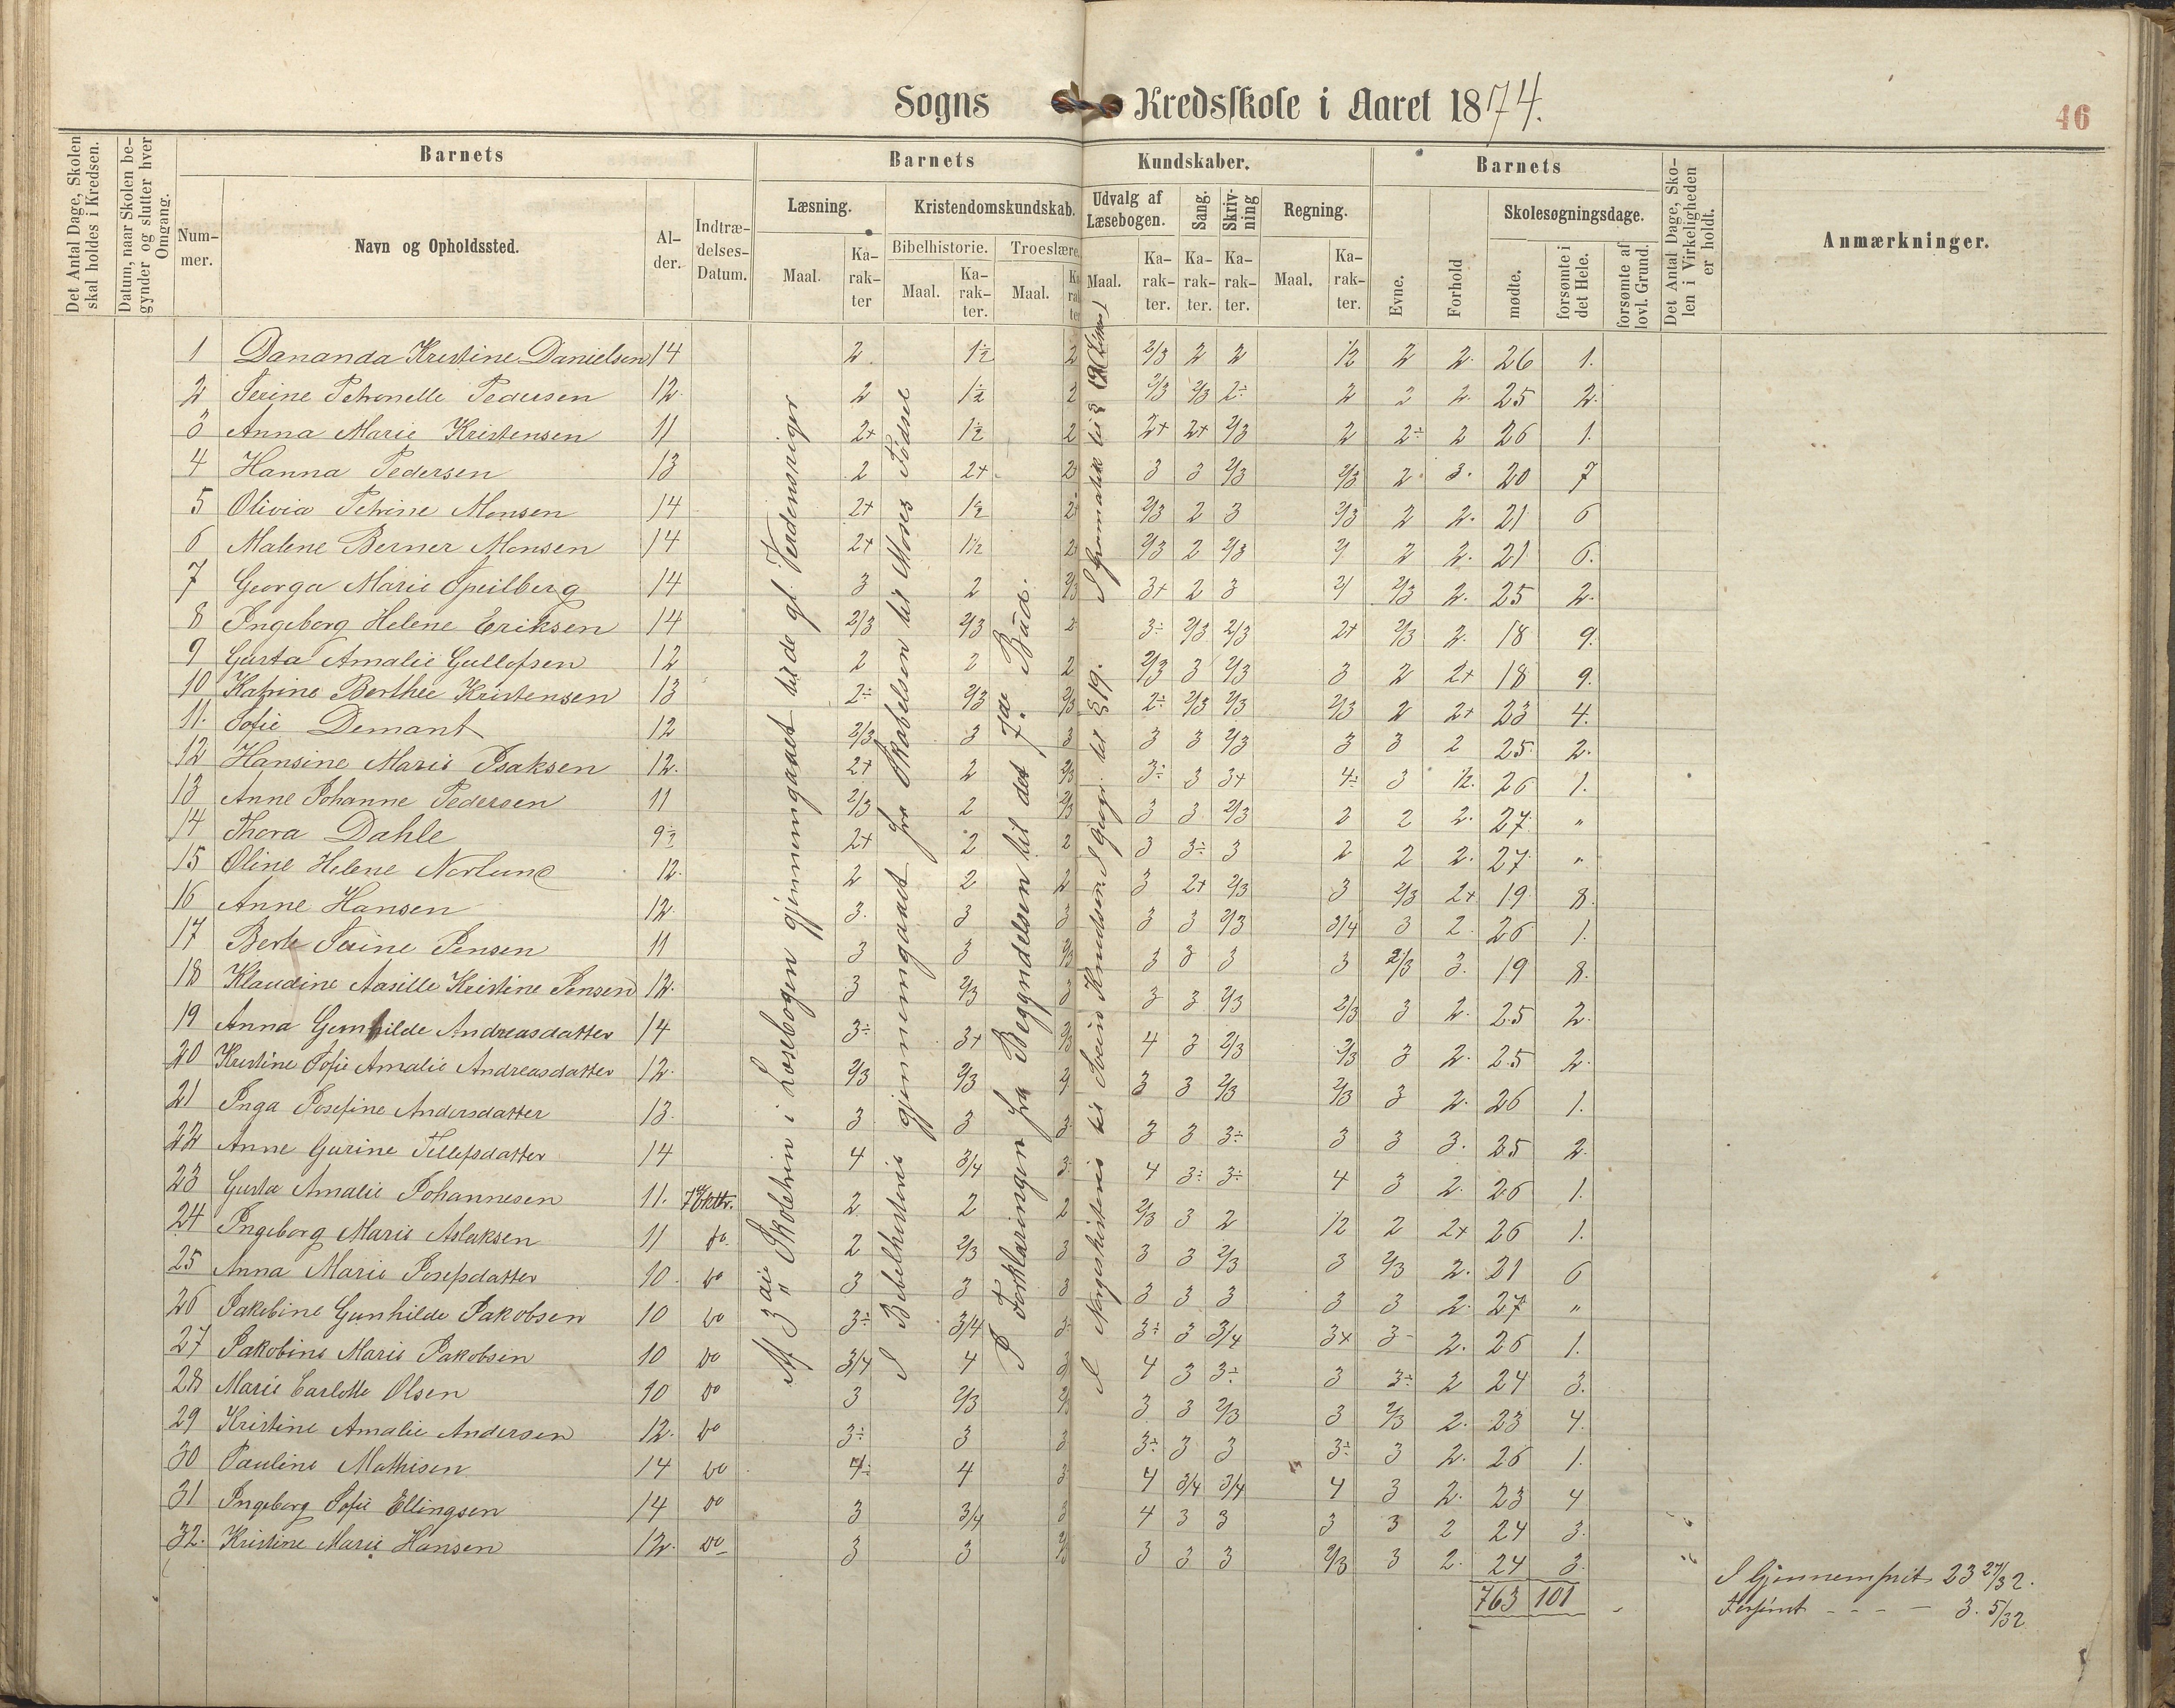 Sogns Kredsskole i Aaret 1874.
46
Det Antal Dage, Skolen skal holdes i Kredsen.
Datum, naar Skolen begynder og slutter hver Omgang.
Barnets
Barnets Kundskaber.
Barnets
Det Antal Dage, Skolen i Virkeligheden er holdt.
Anmærkninger.
Nummer.
Navn og Opholdssted.
Alder.
Indtrædelses-Datum.
Læsning.
Kristendomskundskab.
Udvalg af Læsebogen.
Sang.
Skrivning
Regning.
Evne.
Forhold
Skolesøgningsdage.
Bibelhistorie.
Troeslære.
Maal.
Karakter
Maal.
Karakter.
Maal.
Karakter
Maal.
Karakter.
Karakter.
Karakter.
Maal.
Karakter.
mødte.
forsømte i det Hele.
forsømte af lovl. Grund.
1 Dananda Kristine Danielsen 14 2 1½ 2 2/3 2 2 ½ 2 2. 26 1.
2 Serine Petronelle Pedersen 12 2 1½ 2 2/3 2/3 2÷ 2 2 2. 25 2.
3 Anna Marie Kristensen 11 2+ 1½ 2 2+ 2+ 2/3 2 2÷ 2 26 1.
4 Hanna Pedersen 13 2 2+ 2 3 3 2/3 2/3 2 3. 20 7
5 Olivia Petrine Monsen 14 2+ 1½ 2 2/3 2 3 2/3 2 2. 21 6
6 Malene Berner Monsen 14 2+ 1½ 2 2/3 2 2/3 2 2. 21 6.
7 Georga Marie Speilberg 14 3 2 2/3 3+ 2 3 2/3 2. 25 2.
8 Ingeborg Helene Eriksen 14 2/3 2/3 2 3÷ 2/3 2/3 2+ 2/3 2. 18 9.
9 Gusta Amalie Gullofsen 12 2 2 2 2/3 3 2/3 3 2 2+ 18 9.
10 Katrine Berthee Kristensen 13 2÷ 2/3 2/3 2÷ 2/3 2/3 2/3 2 2+ 23 4.
11. Sofie Demant 12 2/3 3 3 3 3 2/3 3 3 2 25 2.
12 Hansine Marie Isaksen 12. 2+ 2 2/3 3÷ 3 3+ 4÷ 3 ½. 26 1.
13 Anne Johanne Pedersen 11 2/3 2 2/3 3 3 2/3 2 2 2. 27 "
14 Thora Dahle 9½ 2+ 2 2 3 3÷ 3 2 2 2. 27 "
15 Oline Helene Norlund 12. 2 2 2 3 2+ 2/3 3 2/3 2+ 19 8.
16 Anne Hansen 12. 3. 3 3 3 3 2/3 3/4 3 2. 26 1.
17 Berte Serine Jensen 11 3 3 2/3 3 3 3 3 2/3 3. 19 8.
18 Klaudine Aasille Kristine Jensen 12. 3 2/3 3 3 3 2/3 2/3 3 2. 25 2.
19 Anna Gunhilde Andreasdatter 14 3÷ 3+ 2/3 4 3 2/3 2/3 3 2. 25 2.
20 Kristine Sofie Amalie Andreasdatter 12. 2/3 2/3 3 3 2/3 2/3 3 2. 26 1.
21 Inga Josefine Andersdatter 13. 3 3 3 3 3 3÷ 3 3 3. 25 2.
22 Anne Gurine Tellefsdatter 14 4 3/4 3 4 3÷ 3÷ 4 3 2. 26 1.
23 Gusta Amalie Johannesen 11. 7 Oktbr. 2 2 2 2/3 3 2 ½ 2 2+ 26 1.
24 Ingeborg Marie Aslaksen 11 do. 2 2/3 3 3 3 2/3 3 2/3 2. 21 6
25 Anna Marie Josefsdatter 10 do 3 3 3 3 3 3 3 3 2. 27 "
26 Jakobine Gunhilde Jakobsen 10 do 3÷ 3/4 3 3÷ 3 3/4 3+ 3÷ 2. 26 1.
27 Jakobine Marie Jakobsen 10 do 3/4 4 3 4 3 3÷ 3 3÷ 2 24 3.
28 Marie Carlotte Olsen 10 do 3 2/3 2/3 3 3 2/3 3 2/3 2. 23 4.
29 Kristine Amalie Andersen 12. do 3÷ 3 3 3÷ 3 3 3÷ 3 2. 26 1.
30 Pauline Mathisen 14 do 4÷ 4 3 4 3/4 3/4 4 3 2. 23 4
31 Ingeborg Sofie Ellingsen 14 do 3 3/4 3 4 3 3 3 3 2 24 3.
32. Kristine Marie Hansen 12. do 3 3 2/3 3 3 3 2/3 3 2. 24 3.
763 101
Af 3die Skoletrin i Læsebogen gjennemgaaet til de gl. Verdenskriger
I Bibelhistorie gjennemgaaet fra Skabelsen til Moses Fødsel
I Forklaringen fra Begyndelsen til det 7de Bud.
I Norgeshistorie til Svein Knudsen. I Geogr. til § 19. I Gramatik til §
I Gjennemsnit 23 27/32.
Forsømt - - - - 3. 5/32